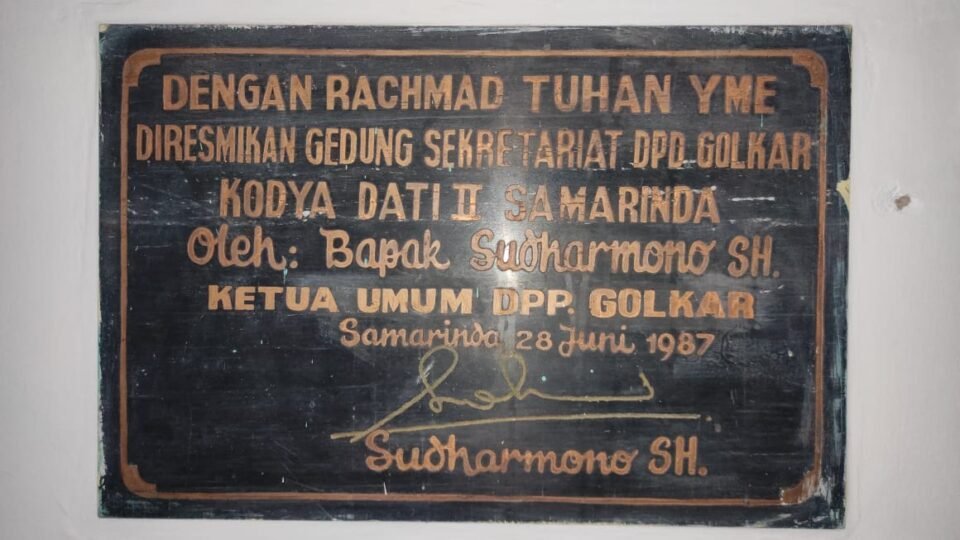 DENGAN RACHMAD TUHAN YME
DIRESMIKAN GEDUNG SEKRETARIAT DPD GOLKAR
KODYA DATI II SAMARINDA
Oleh: Bapak Sudharmono SH.
KETUA UMUM DPP. GOLKAR
Samarinda 28 Juni 1987
Sudharmono SH.